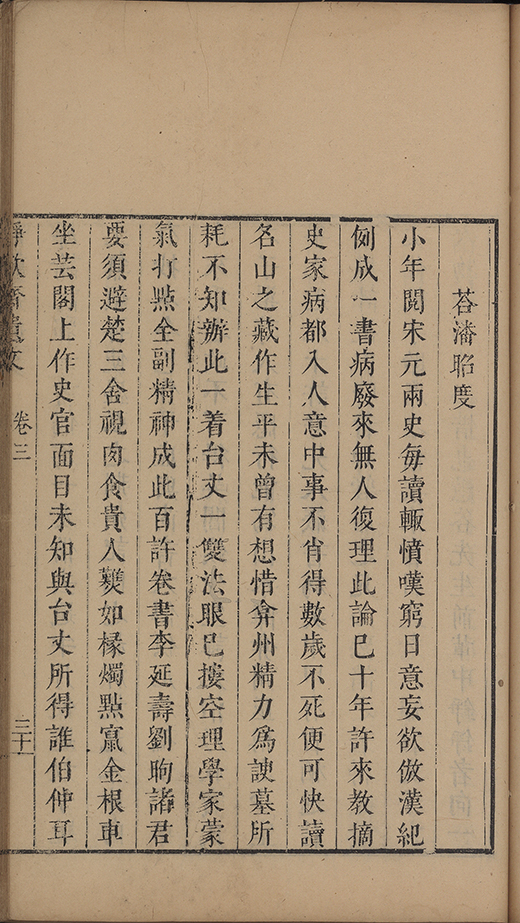 荅潘昭度
小年閱宋元兩史每讀輙憤嘆窮日意妄欲倣漢紀
例成一書病廢來無人復理此論已十年許來教摘
史家病都入人意中事不肖得數歲不死便可快讀
名山之藏作生平未曾有想惜弇州精力爲諛墓所
耗不知辦此一着台丈一雙法眼已摟空理學家蒙
氣打點全副精神成此百許卷書李延壽劉昫諸君
要須避楚三舍視肉食貴人爇如椽燭點竄金根車
坐芸閣上作史官面目未知與台丈所得誰伯仲耳
靜歗齋遺文 卷三 三十一